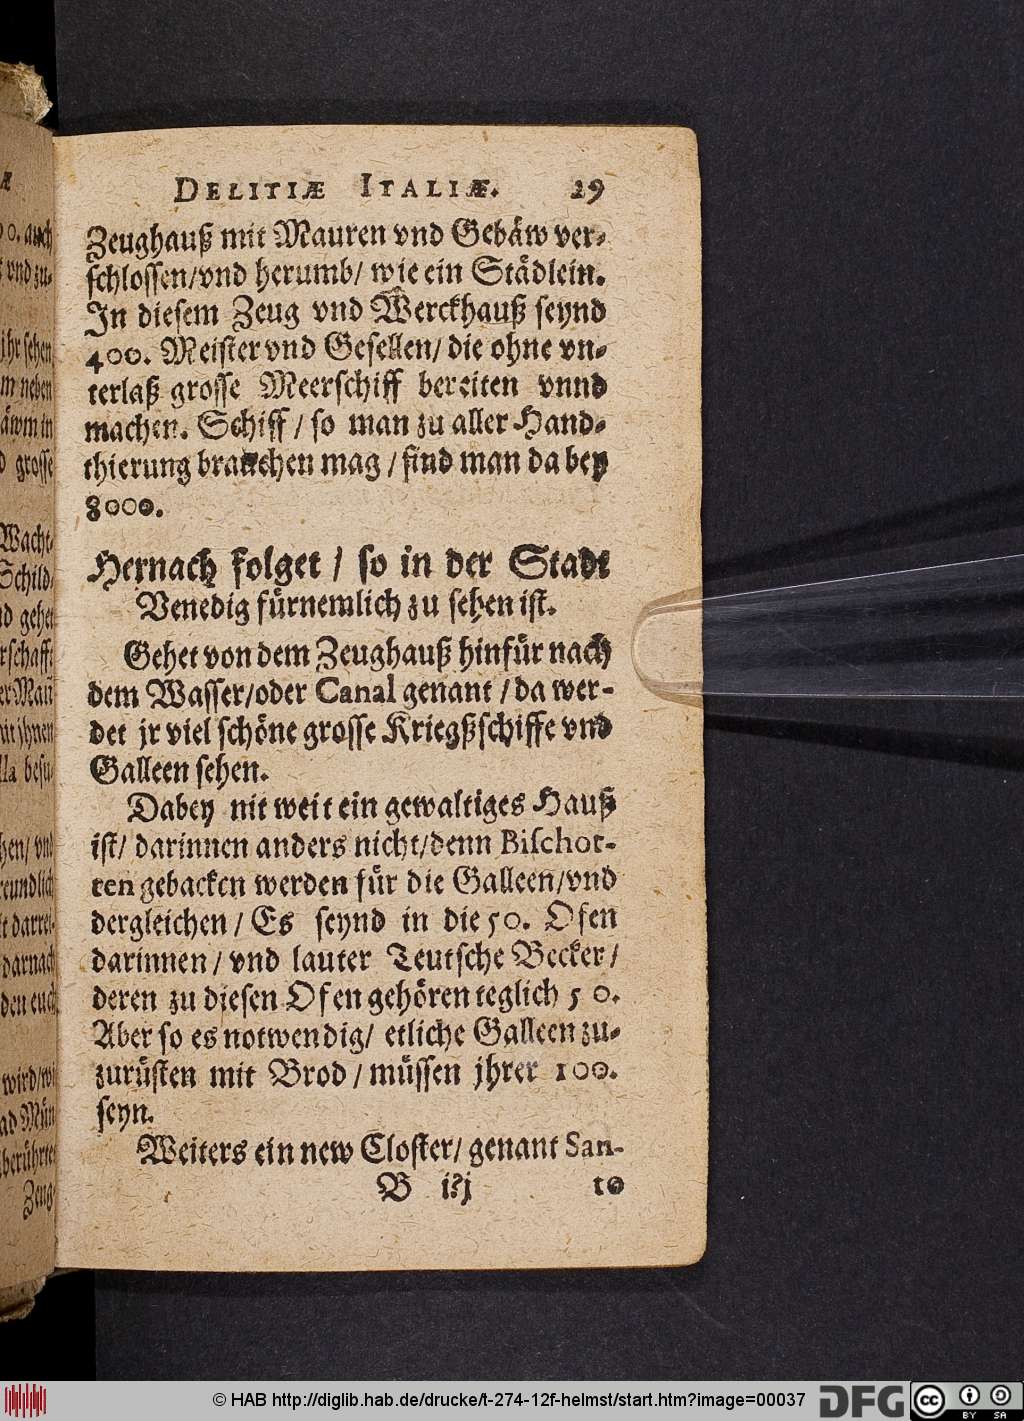 DELITIÆ ITALIÆ. 29
Zeughauß mit Mauren vnd Gebäw ver-
schlossen/vnd herumb/ wie ein Städlein.
In diesem Zeug vnd Werckhauß seynd
400. Meister vnd Gesellen/ die ohne vn-
terlaß grosse Meerschiff bereiten vnnd
machen. Schiff / so man zu aller Hand-
thierung brauchen mag / find man da bey
8000.
Hernach folget / so in der Stadt
Venedig fürnemlich zu sehen ist.
Gehet von dem Zeughauß hinfür nach
dem Wasser/oder Canal genant / da wer-
det jr viel schöne grosse Kriegßschiffe vnd
Galleen sehen.
Dabey nit weit ein gewaltiges Hauß
ist/ darinnen anders nicht/denn Bischot-
ten gebacken werden für die Galleen/vnd
dergleichen / Es seynd in die 50. Ofen
darinnen / vnd lauter Teutsche Becker /
deren zu diesen Ofen gehören teglich 50.
Aber so es notwendig/ etliche Galleen zu-
zurüsten mit Brod / müssen jhrer 100.
seyn.
Weiters ein new Closter/ genant San-
B iij to
æ
00. auch
vnd zu-
jhr sehen
m neben
äwm in
d grosse
Wacht-
Schild-
nd gehet
rschafft
er Mañ
mit jhnen
lla besu-
hen/ vnd
reundlich
t darrei-
darnach
den euch
wird/wi
ad Mün
berührte
Zeug-
© HAB http://diglib.hab.de/drucke/t-274-12f-helmst/start.htm?image=00037 DFG cc BY SA